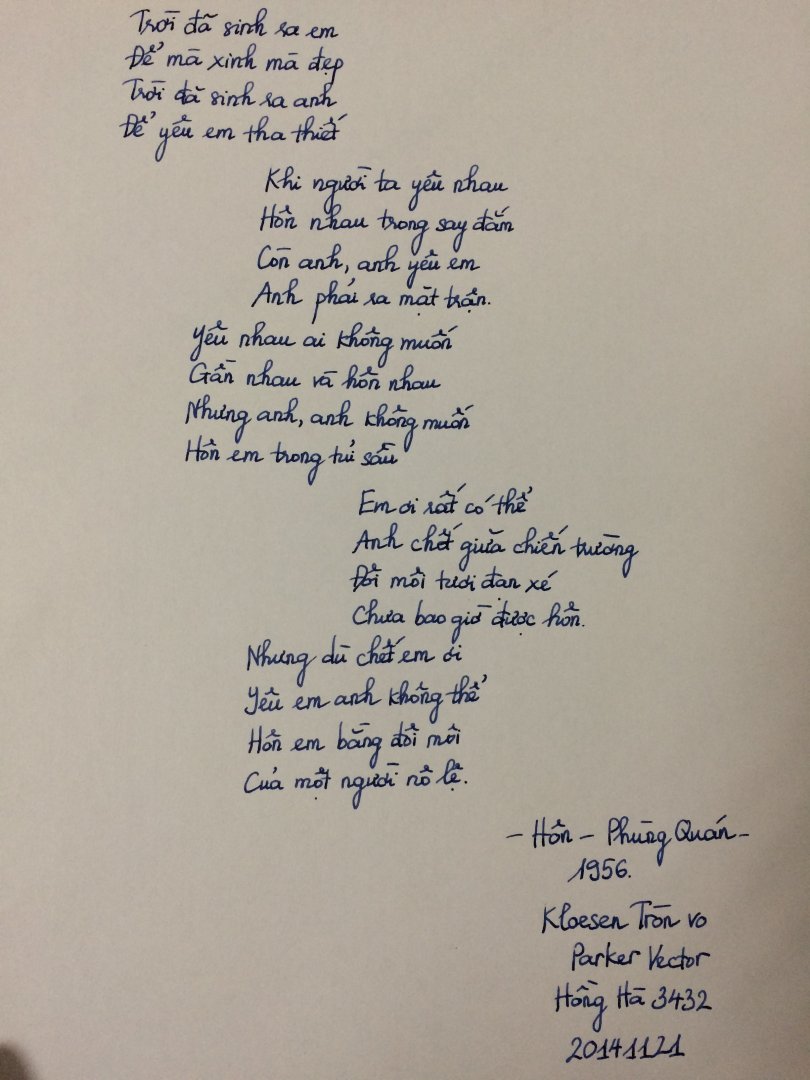 Trời đã sinh ra em
Để mà xinh mà đẹp
Trời đã sinh ra anh
Để yêu em tha thiết
Khi người ta yêu nhau
Hôn nhau trong say đắm
Còn anh, anh yêu em
Anh phải ra mặt trận.
Yêu nhau ai không muốn
Gần nhau và hôn nhau
Nhưng anh, anh không muốn
Hôn em trong tủi sầu
Em ơi rất có thể
Anh chết giữa chiến trường
Đôi môi tươi đạn xé
Chưa bao giờ được hôn.
Nhưng dù chết em ơi
Yêu em anh không thể
Hôn em bằng đôi môi
Của một người nô lệ.
- Hôn - Phùng Quán -
1956.
Kloesen Tròn vo
Parker Vector
Hồng Hà 3432
20141121